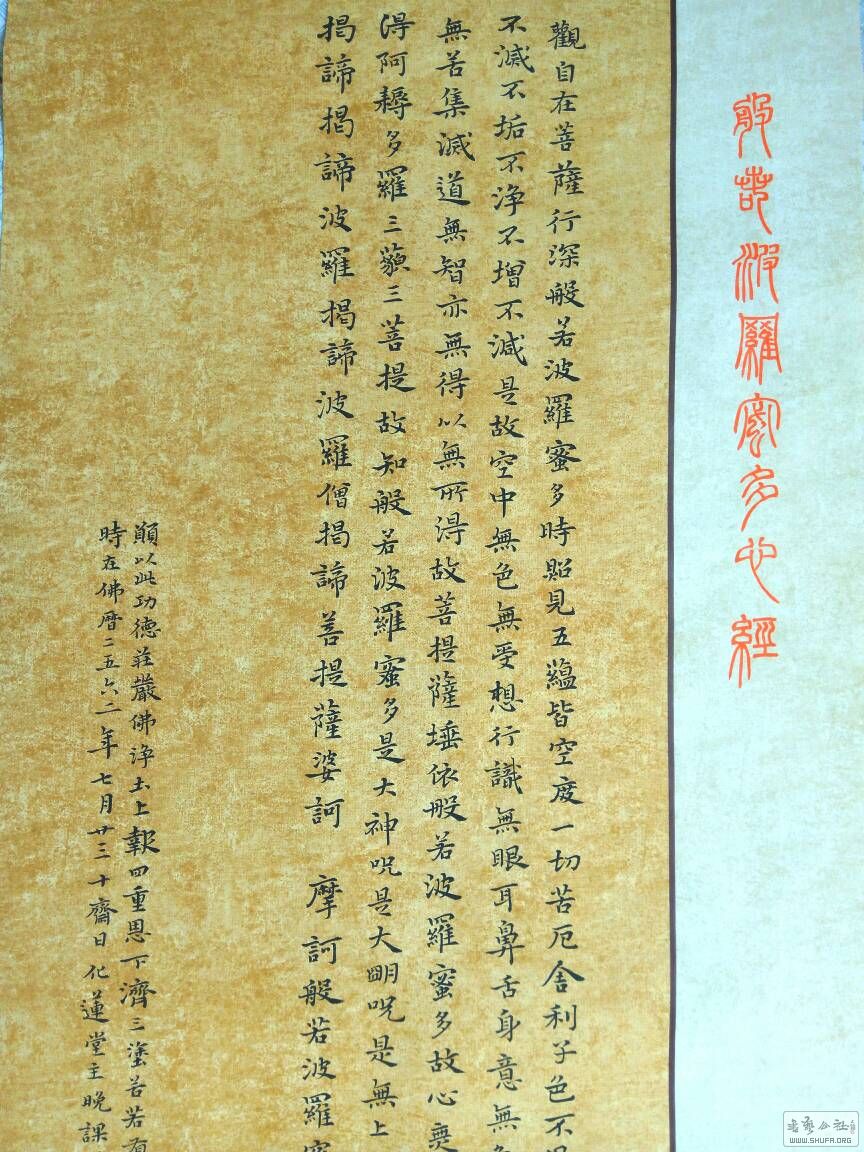 般若波羅蜜多心經
觀自在菩薩行深般若波羅蜜多時照見五蘊皆空度一切苦厄舍利子色不
不滅不垢不淨不增不減是故空中無色無受想行識無眼耳鼻舌身意無
無苦集滅道無智亦無得以無所得故菩提薩埵依般若波羅蜜多故心無
得阿耨多羅三藐三菩提故知般若波羅蜜多是大神咒是大明咒是無上
揭諦揭諦波羅揭諦波羅僧揭諦菩提薩婆訶 摩訶般若波羅蜜
願以此功德莊嚴佛淨土上報四重恩下濟三塗苦若有
時在佛曆二五六二年七月廿三十齋日化蓮堂主晚課
书艺公社
WWW.SHUFA.ORG